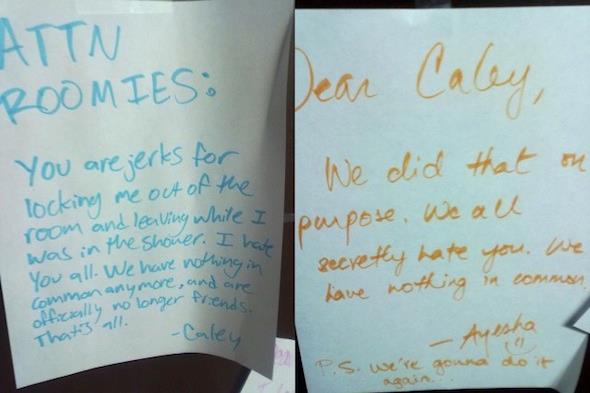 ATTN
ROOMIES:
You are jerks for
locking me out of the
room and leaving while I
was in the shower. I hate
you all. We have nothing in
common anymore, and are
officially no longer friends.
That's all.
-Caley
Dear Caley,
We did that on
purpose. We all
secretly hate you. We
have nothing in common.
- Ayesha
P.S. we're gonna do it
again...